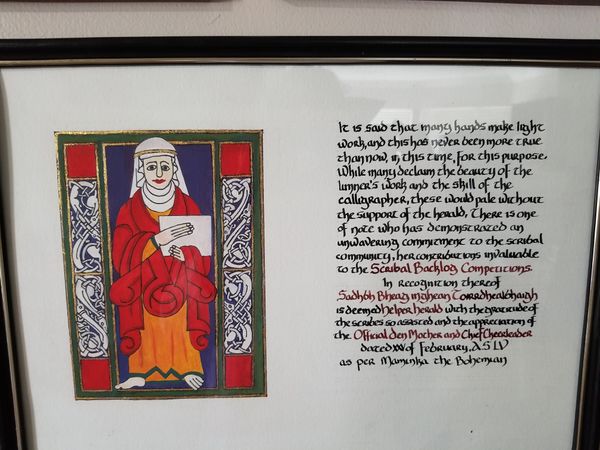 It is said that many hands make light
work, and this has never been more true
than now, in this time, for this purpose.
While many declaim the beauty of the
limner's work and the skill of the
calligrapher, these would pale without
the support of the herald. There is one
of note who has demonstrated an
unwavering commitment to the scribal
community, her contributions invaluable
to the Scribal Backlog Competitions.
In recognition thereof
Sadhbh Bheag inghean Toirrdhealbhaigh
is deemed Helper Herald with the gratitude of
the scribes so assisted and the appreciation of
the Official Den Mother and Chief Cheerleader
dated XXV of February, A.S. LV
as per Maminka the Bohemian